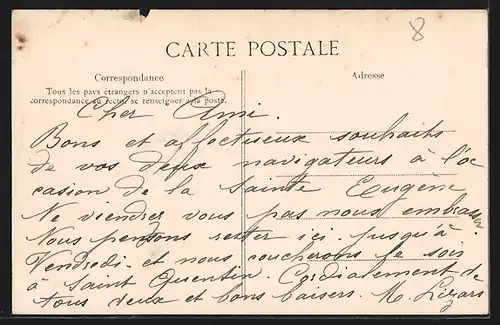 8
CARTE POSTALE
Correspondance
Adresse
Tous les pays étrangers n'acceptent pas la
correspondance au recto, se renseigner à la poste.
Cher Ami.
Bons et affectueux souhaits
de vos deux navigateurs à l'oc
casion de la Sainte Eugène
Ne viendrez vous pas nous embrasser.
Nous pensons rester ici jusqu'à
Vendredi et nous coucherons le soir
à Saint Quentin. Cordialement de
tous deux et bons baisers. M.